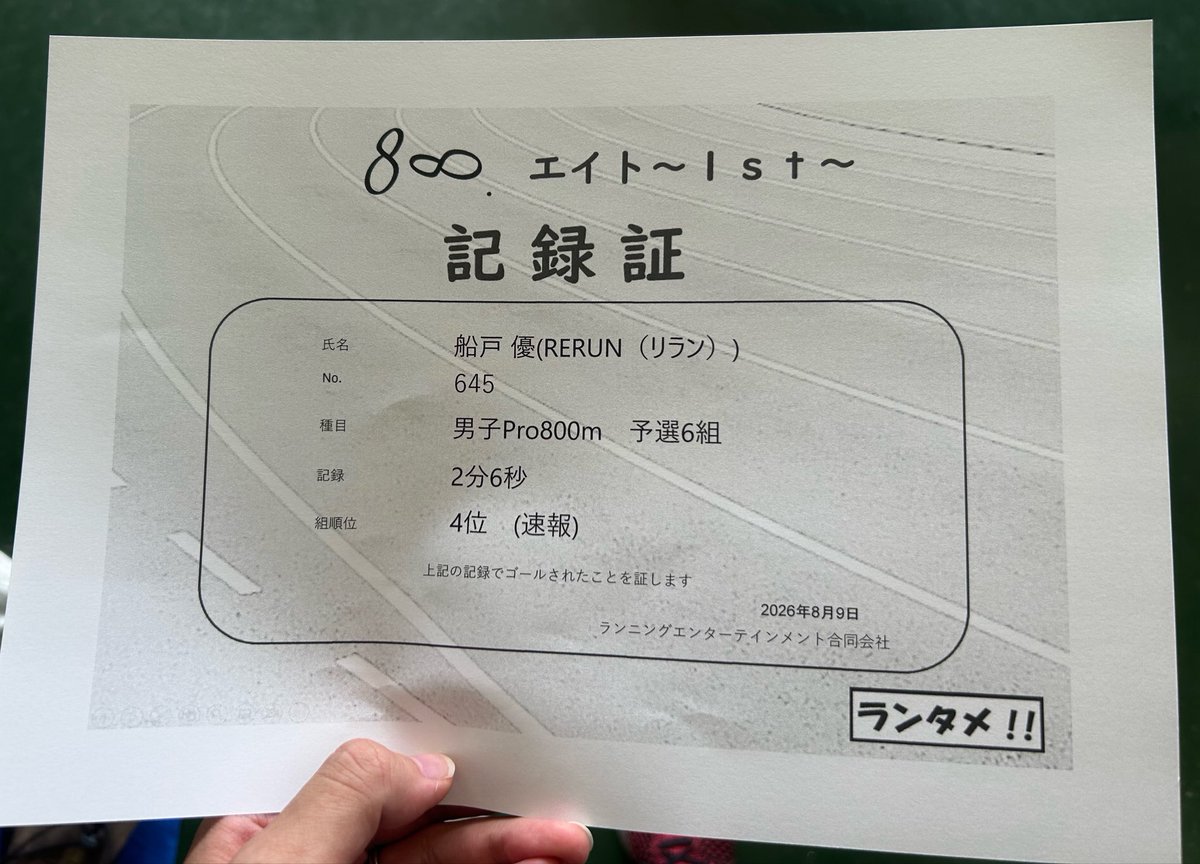 8∞. エイト～1st～
記録証
氏名 船戸 優(RERUN（リラン）)
No. 645
種目 男子Pro800m 予選6組
記録 2分6秒
組順位 4位 (速報)
上記の記録でゴールされたことを証します
2026年8月9日
ランニングエンターテインメント合同会社
ランタメ!!